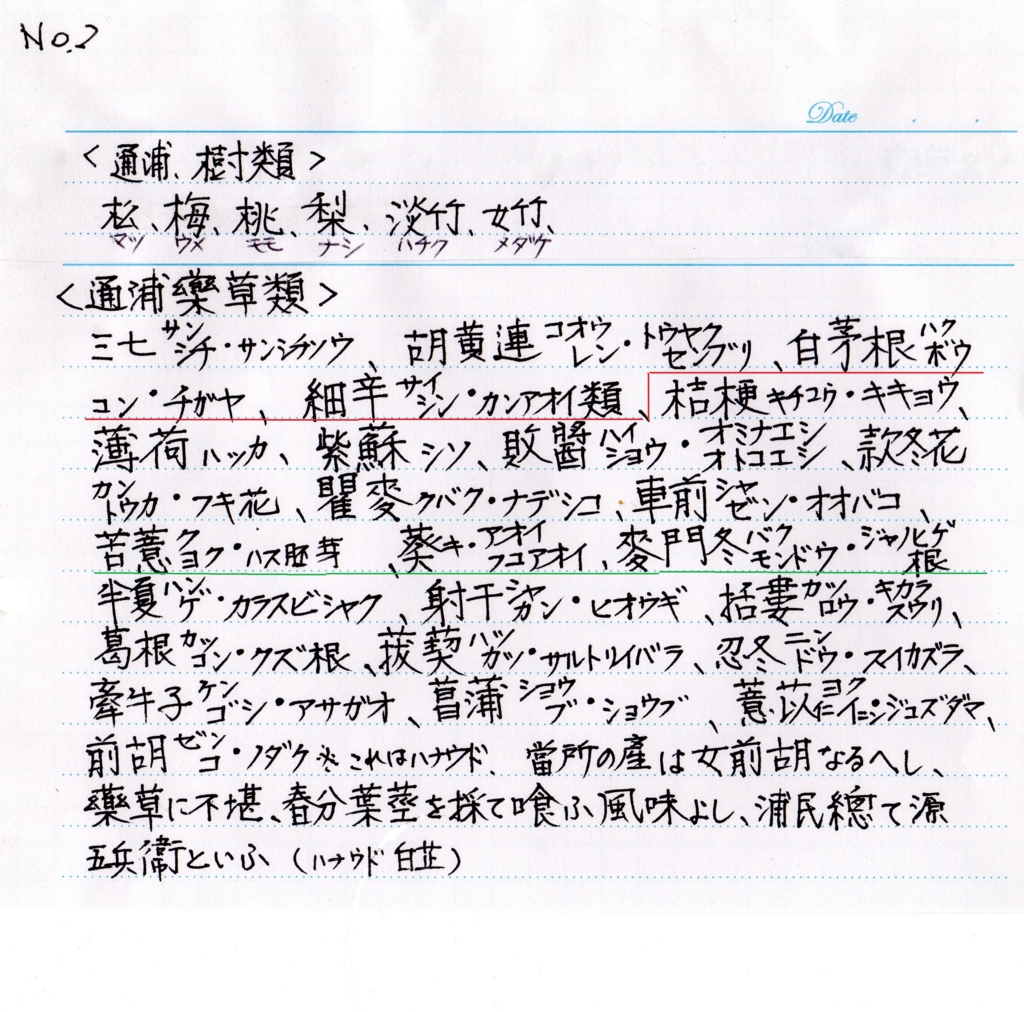 No.2
Date
<通浦、樹類>
松、梅、桃、梨、淡竹、女竹、
マツ ウメ モモ ナシ ハチク メダケ
<通浦藥草類>
三七サンシチ・サンシチソウ、胡黄連コオウレン・トウヤクセンブリ、白茅根ハクボウ
コン・チガヤ、細辛サイシン・カンアオイ類、桔梗キチコウ・キキョウ、
薄荷ハッカ、紫蘇シソ、敗醬ハイショウ・オミナエシオトコエシ、款冬花
カントウカ・フキ花、瞿麥クバク・ナデシコ、車前シャゼン・オオバコ、
苦薏クヨク・ハス胚芽、葵キ・アオイフユアオイ、麥門冬バクモンドウ・ジャノヒゲ根
半夏ハンゲ・カラスビシャク、射干シャカン・ヒオウギ、括蔞カツロウ・キカラスウリ、
葛根カッコン・クズ根、菝葜ハツカツ・サルトリイバラ、忍冬ニンドウ・スイカズラ、
牽牛子ケンゴシ・アサガオ、菖蒲ショウブ・ショウブ、薏苡仁ヨクイニン・ジュズダマ、
前胡ゼンコ・ノダケ※これはハナウド、當所の産は女前胡なるへし、
藥草に不堪、春分葉莖を採て喰ふ風味よし、浦民總て源
五兵衛といふ(ハナウド 白芷)